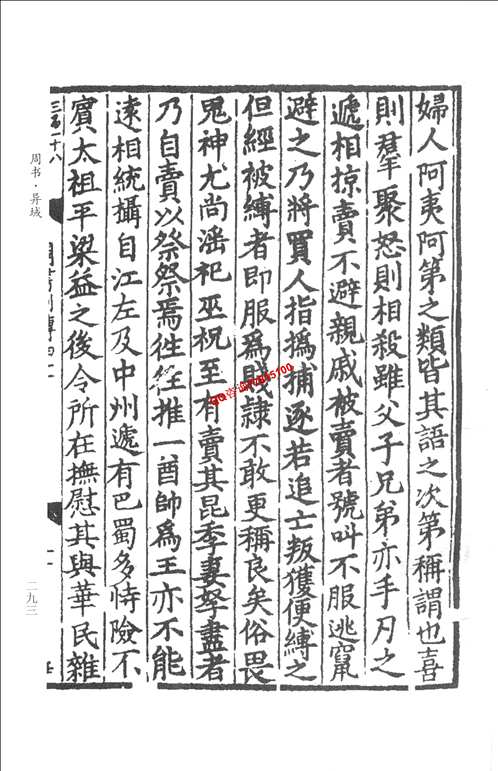 婦人阿夷阿第之類皆其語之次第稱謂也喜
則羣聚怒則相殺雖父子兄弟亦手刃之
遞相掠賣不避親戚被賣者號叫不服逃竄
避之乃將買人指撝捕逐若追亡叛獲便縛之
但經被縛者即服爲賤隸不敢更稱良矣俗畏
鬼神尤尚滛祀巫祝至有賣其昆季妻孥盡者
乃自賣以祭祭焉徃徃推一酋帥爲王亦不能
逺相統攝自江左及中州遞有巴蜀多恃險不
賓太祖平梁益之後令所在撫慰其與華民雜
三百十八
周书·异域
二九三